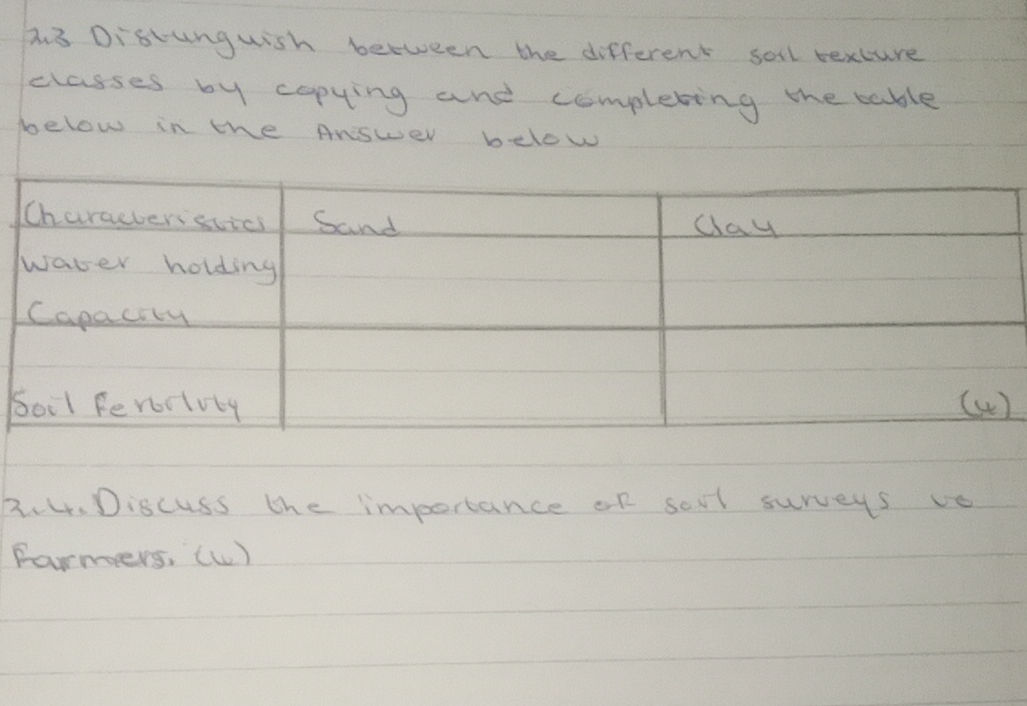 2.3 Distinguish between the different soil texture
classes by copying and completing the table
below in the Answer below
Characteristics Sand Clay
Water holding
Capacity
Soil Fertility (4)
2.4. Discuss the importance of soil surveys to
Farmers. (4)